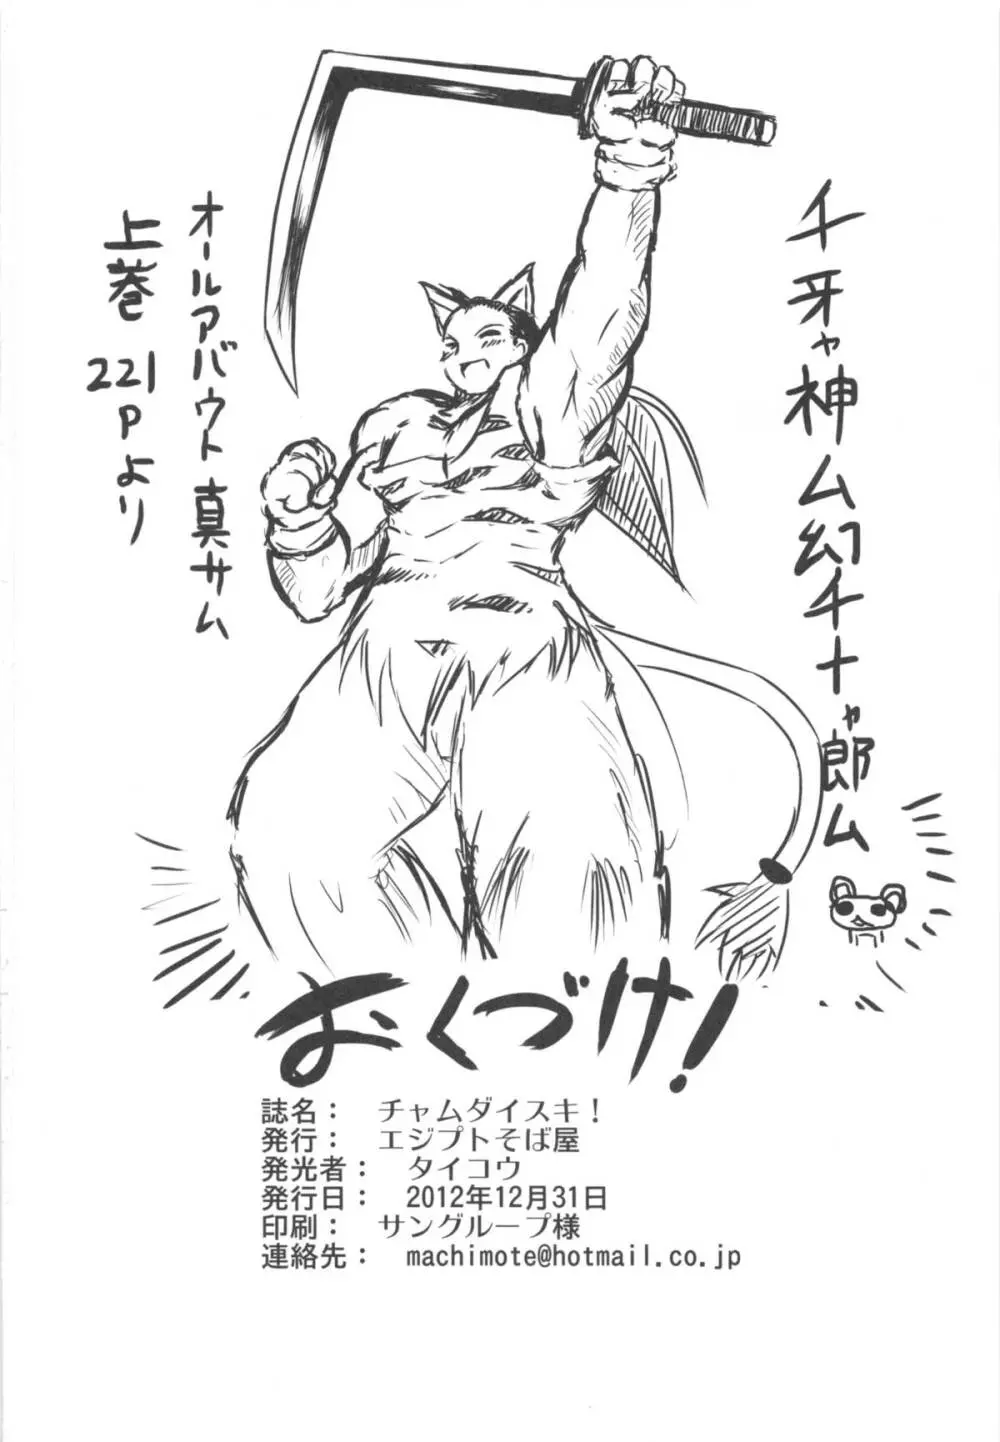 千牙ャ神ム幻千十ャ郎ム
オールアバウト真サム
上巻 221pより
おくづけ!
誌名： チャムダイスキ！
発行： エジプトそば屋
発光者： タイコウ
発行日： 2012年12月31日
印刷： サングループ様
連絡先： machimote@hotmail.co.jp